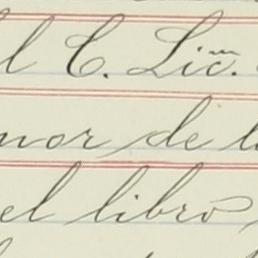 l C. Lic.
nor de l
el libro